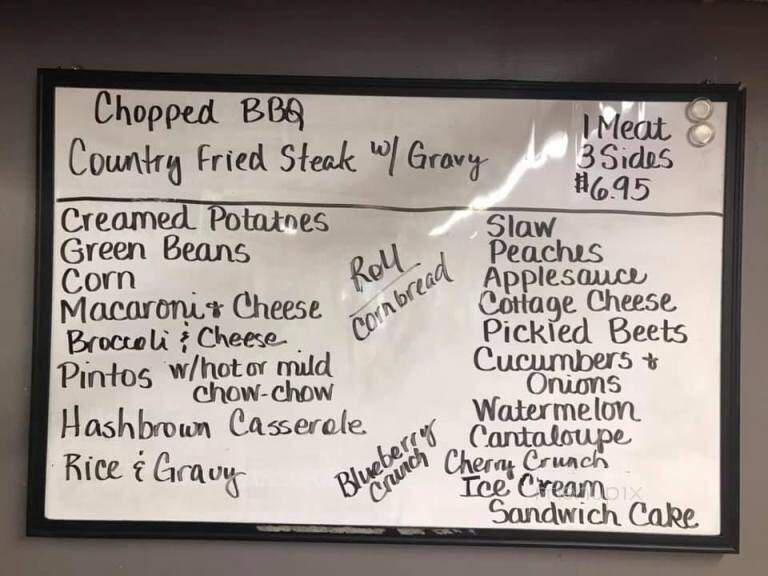 Chopped BBQ
Country Fried Steak w/ Gravy
1 Meat
3 Sides
$6.95
Creamed Potatoes
Green Beans
Corn
Macaroni & Cheese
Broccoli & Cheese
Pintos w/hot or mild
chow-chow
Hashbrown Casserole
Rice & Gravy
Roll
Cornbread
Blueberry
Crunch
Slaw
Peaches
Applesauce
Cottage Cheese
Pickled Beets
Cucumbers &
Onions
Watermelon
Cantaloupe
Cherry Crunch
Ice Cream
Sandwich Cake